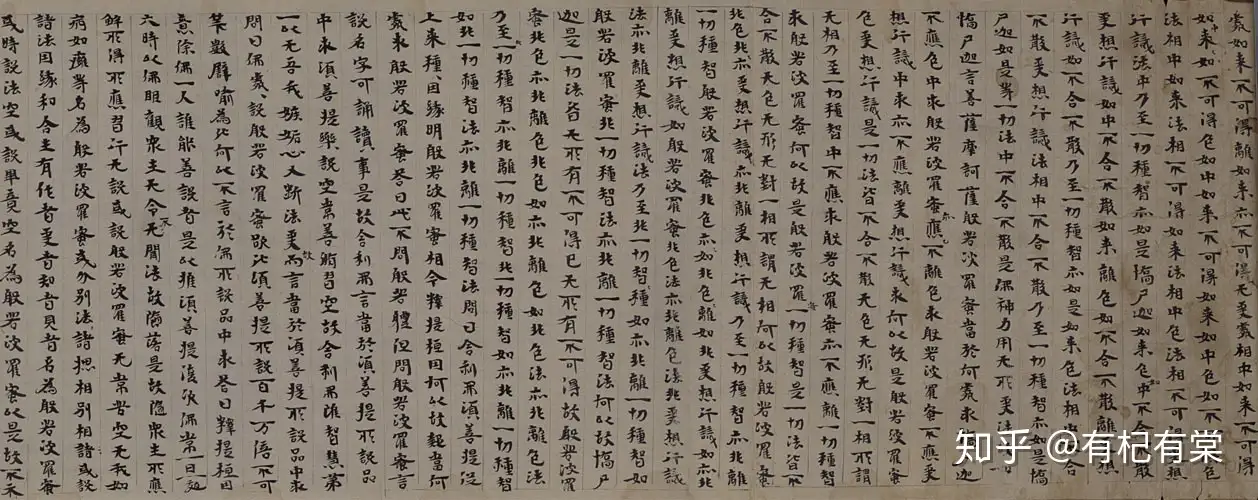 處如來不可得離如來不可得无受處相中如來不可得
如來如不可得色如中如來不可得如來如中色如不
法相中如來法相不可得如來法相中色法相不可得
行識法中乃至一切種智亦如是憍尸迦如來色如中不合不散
受想行識如中不合不散如來離色如不合不散離受想
行識如不合不散乃至一切種智亦如是如來色法相中不合
不散受想行識法相中不合不散乃至一切種智亦如是憍
尸迦如是等一切法中不合不散是佛神力用无所受法
憍尸迦言善薩摩訶薩般若波羅蜜當於何處求
不應色中求般若波羅蜜亦應不離色求般若波羅蜜不應受
想行識中求亦不應離受想行識求何以故是般若波羅蜜
色受想行識是一切法皆不合不散无色无形无對一相所謂
无相乃至一切種智中不應求般若波羅蜜亦不應離一切種智
求般若波羅蜜何以故是般若波羅蜜一切種智是一切法皆不
合不散无色无形无對一相所謂无相何以故般若波羅蜜
非色亦非受想行識亦非離受想行識乃至一切種智亦非
一切種智般若波羅蜜非色如亦非離色如非受想行識如亦非
離受想行識如般若波羅蜜非色法亦非離色法非受想行識
法亦非離受想行識法乃至非一切種智如亦非離一切種智如
般若波羅蜜非一切種智法亦非離一切種智法何以故憍尸
迦是一切法皆无所有不可得已无所有不可得故般若波羅
蜜非色亦非離色非色如亦非離色如非色法亦非離色法
乃至非一切種智亦非離一切種智非一切種智如亦非離一切種智
如非一切種智法亦非離一切種智法問曰舍利弗須菩提從
上來種種因緣明般若波羅蜜相今釋提桓因何以故更問當何
處求般若波羅蜜答曰此不問般若體但問般若波羅蜜言
說名字可誦讀事是故舍利弗言當於須菩提所說品
中求須菩提樂說空常善習空故舍利弗雖智慧第
一以无吾我嫉妬心又斷法愛故而言當於須菩提所說品中求
問曰佛處處說般若波羅蜜欲比須菩提所說百千万倍不可
算數譬喻為比何以不言於佛所說品中求答曰釋提桓因
意除佛一人誰能善說者是以推須菩提復次佛常一日一夜
六時以佛眼觀眾生无令不聞法故墮落是故隱眾生所應
解所得所應習行无說或說般若波羅蜜无常苦空无我如
病如癰等名為般若波羅蜜或分別法諸總相別相諸或說
諸法因緣和合生有作者受者知者見者名為般若波羅蜜
或時說法空或說畢竟空名為般若波羅蜜以是故不
知乎 @有杞有棠